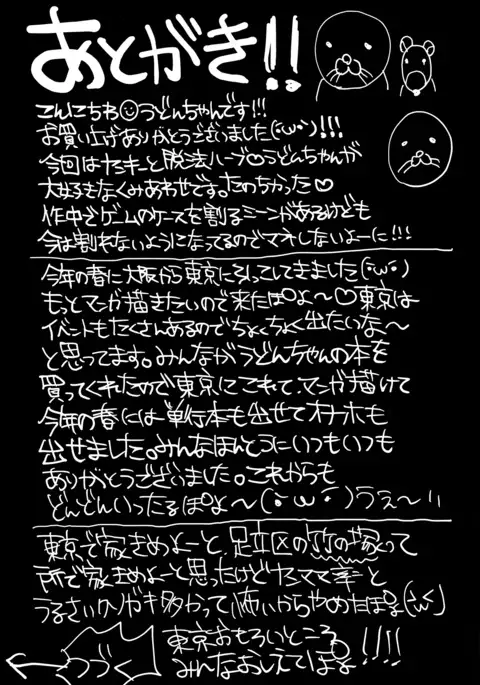 あとがき!!
こんにちわ☺うどんちゃんです!!!
お買い上げありがとうございました(・ω・)!!!
今回はヤンキーと脱法ハーブ♡うどんちゃんが
大好きなくみあわせです。たのちかった♡
作中でゲームのケースを割るシーンがあるけども
今は割れないようになってるのでマネしないよーに!!!
今年の春に大阪から東京にひっこしてきました(・ω・)
もっとマンガ描きたいので来たぽよ〜♡東京は
イベントもたくさんあるのでちょくちょく出たいな〜
と思ってます。みんながうどんちゃんの本を
買ってくれたので東京にこれて、マンガ描けて
今年の春には単行本も出せてオナホも
出せました。みんなほんとうにいつもいつも
ありがとうございました。これからも
どんどんいったるぽよ〜(・ω・)うぇ〜い
東京で家きめよーと、足立区の竹の塚って
所で家きめよーと思ったけどヤンママ率と
うるさいクソガキ多かって怖いからやめたぽよ(・ω・)
東京おもろいところ
みんなおしえてぽよ!!!!
つづく